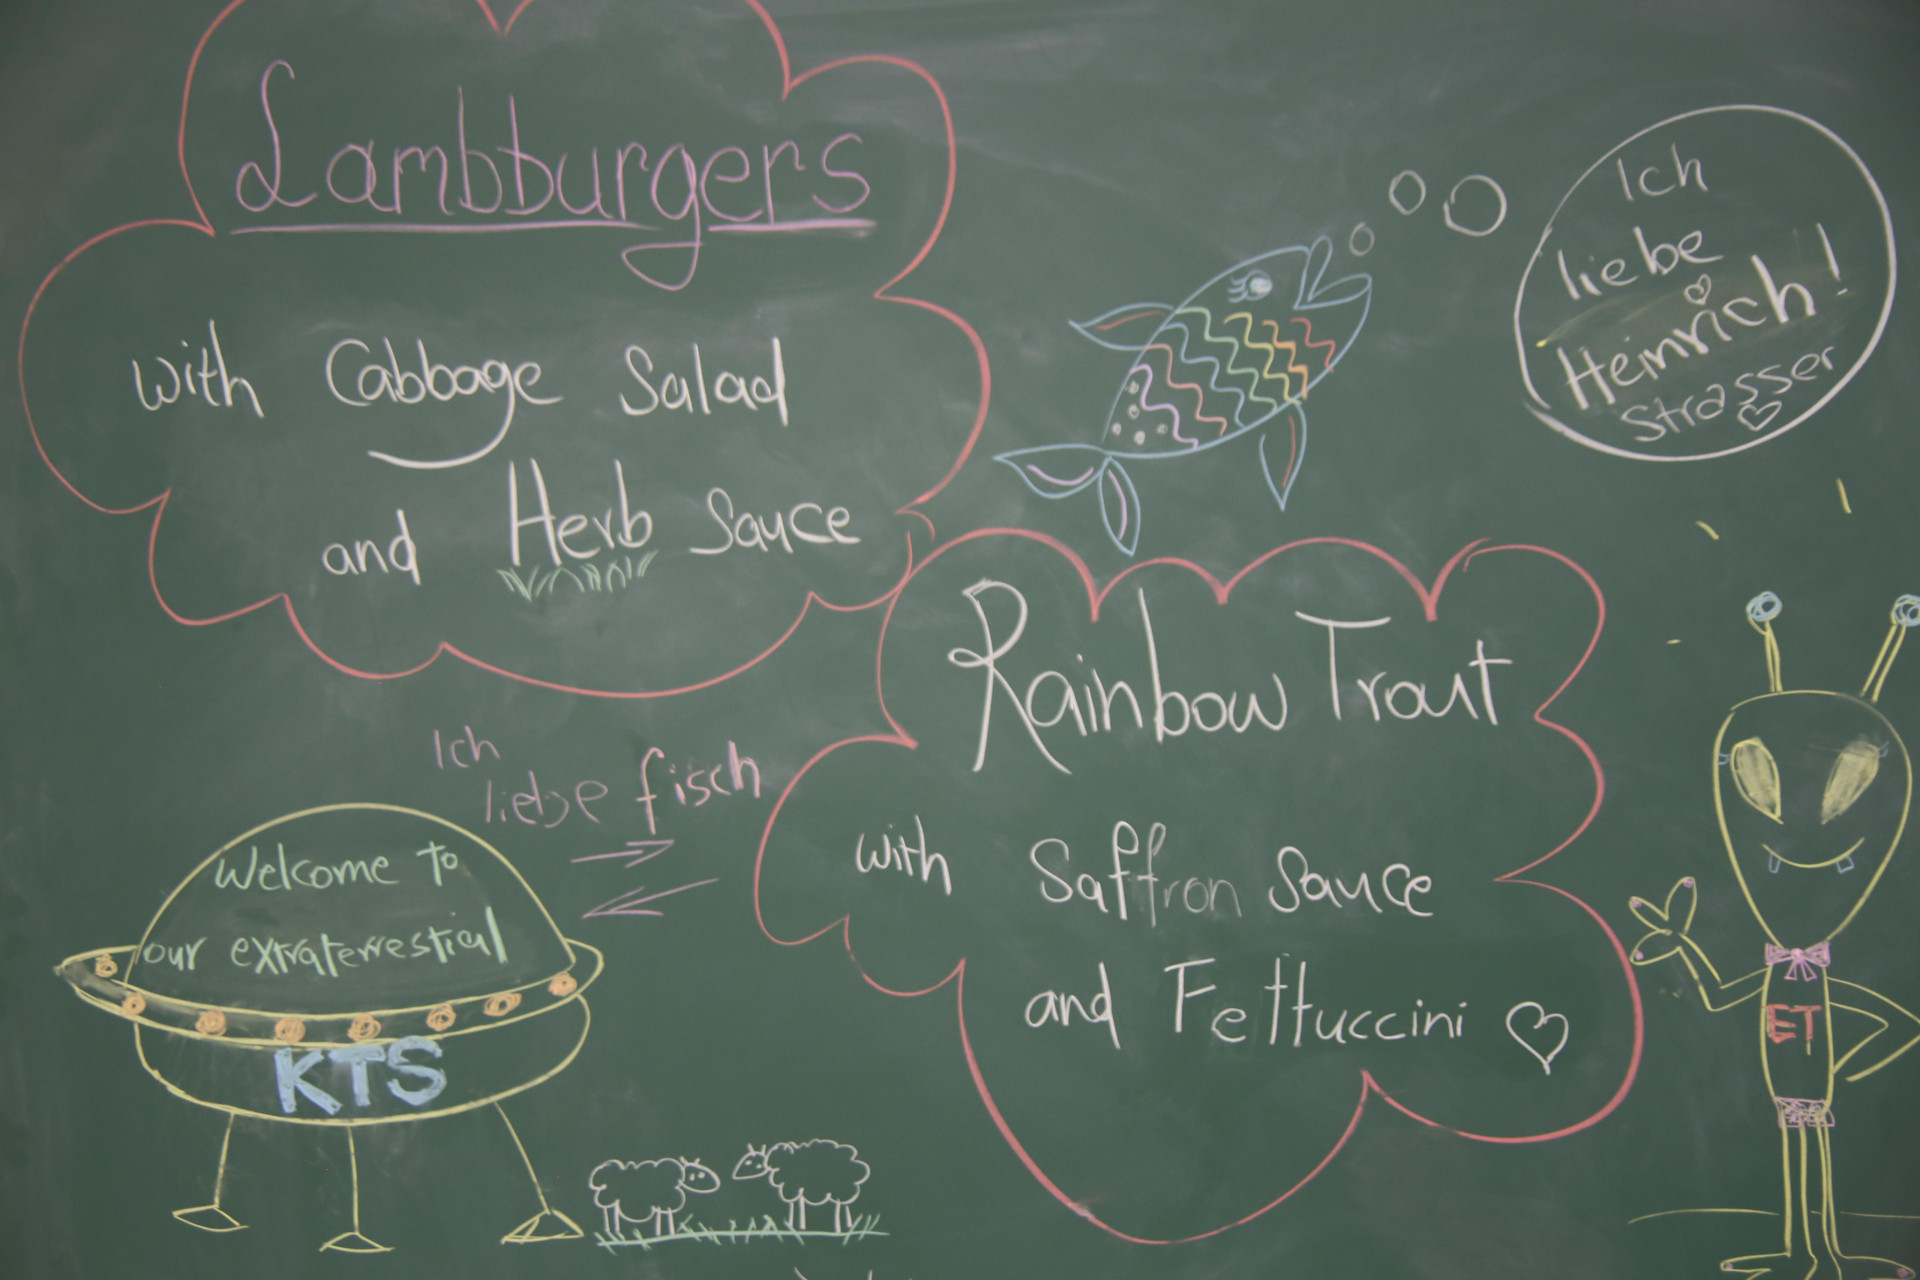 Lambburgers
with Cabbage Salad
and Herb Sauce
Ich
liebe
Heinrich!
Strasser
Rainbow Trout
with Saffron Sauce
and Fettuccini
Ich
liebe fisch
Welcome to
our extraterrestial
KTS
ET